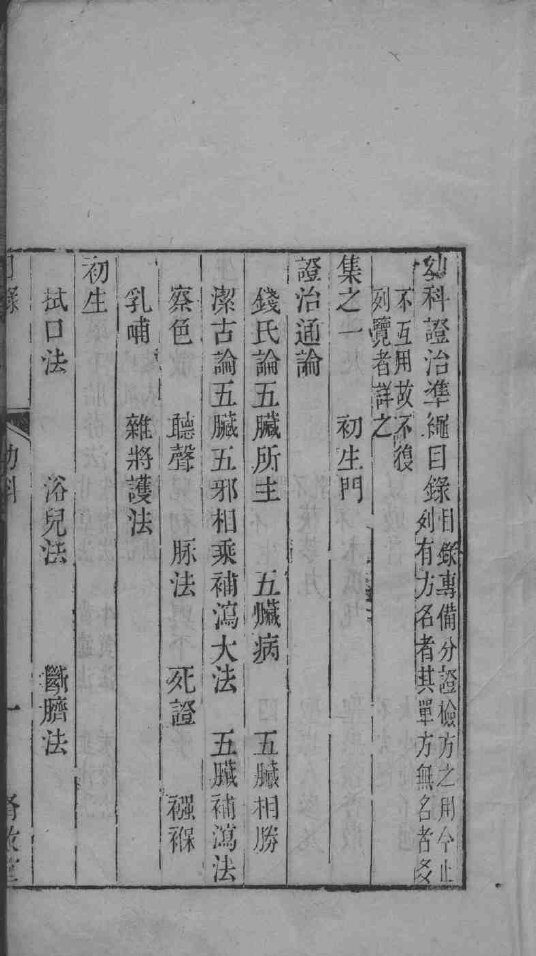 幼科證治準繩目錄目錄專備分證檢方之用今止列有方名者其單方無名者及
不互用故不復列覽者詳之
集之一 初生門
證治通論
錢氏論五臟所主 五臟病 五臟相勝
潔古論五臟五邪相乘補瀉大法 五臟補瀉法
察色 聽聲 脉法 死證 襁褓
乳哺 雜將護法
初生
拭口法 浴兒法 斷臍法
目錄 幼科 一